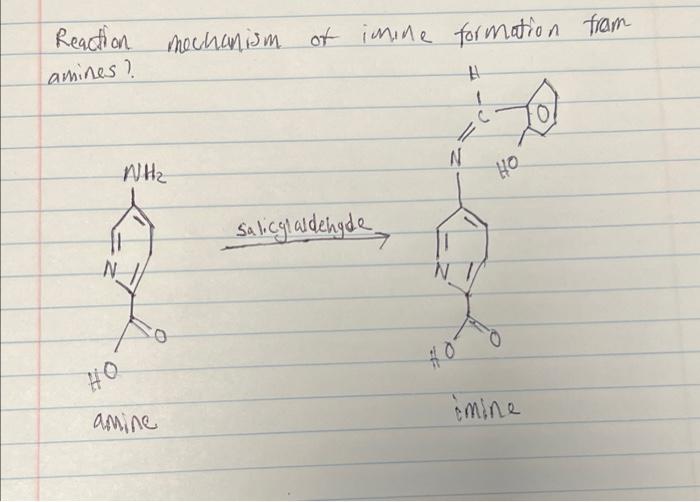 Reaction mechanism of imine formation from
amines?
H
C
N
HO
NH2
salicylaldehyde
N
N
O
O
HO
HO
amine
imine